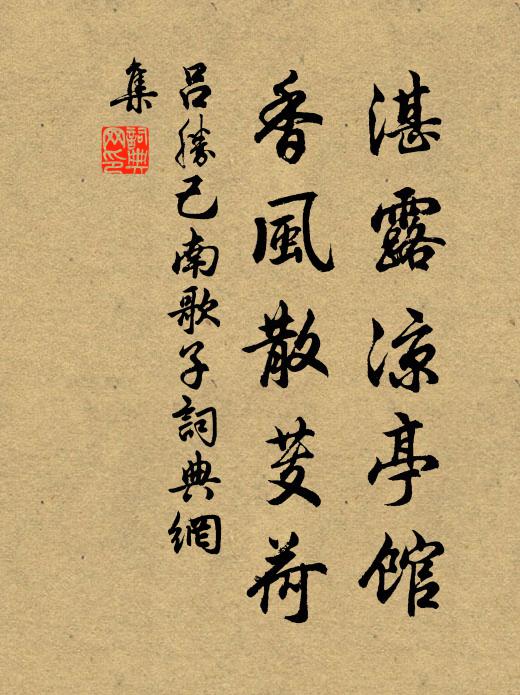 湛露凉亭館
香風散芰荷
吕勝己南歌子詞典網
集
詞典網印